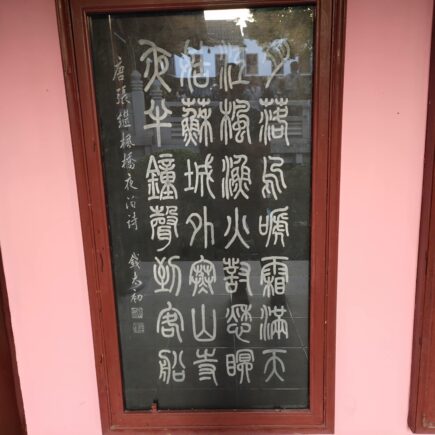 月落烏啼霜滿天
江楓漁火對愁眠
姑蘇城外寒山寺
夜半鐘聲到客船
唐張繼楓橋夜泊詩 錢太初